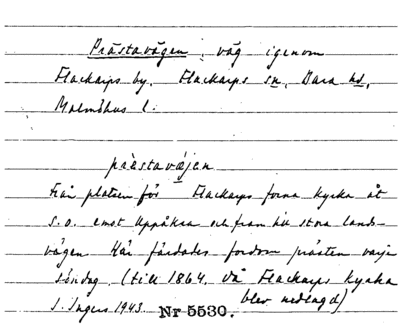 Prästavägen, väg igenom
Flackarps by. Flackarps sn, Bara hd,
Malmöhus l.
prästavæjen
Från platsen för Flackarps forna kyrka åt
s.o. emot Uppåkra och fram till stora lands-
vägen. Här färdades fordom prästen varje
söndag. (till 1864, då Flackarps kyrka
blev nedlagd)
S. Ingers 1943. Nr 5530.